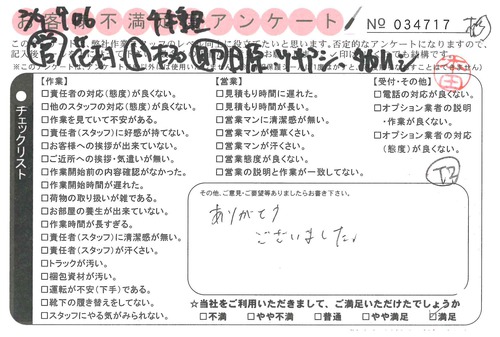 お客様不満足度アンケート
№ 034717
チェックリスト
【作業】
□責任者の対応(態度)が良くない。
□他のスタッフの対応(態度)が良くない。
□作業を見ていて不安がある。
□責任者(スタッフ)に好感が持てない。
□お客様への挨拶が出来ていない。
□ご近所への挨拶・気遣いが無い。
□作業開始前の内容確認がなかった。
□作業開始時間が遅れた。
□荷物の取り扱いが雑である。
□お部屋の養生が出来ていない。
□作業時間が長すぎる。
□責任者(スタッフ)に清潔感が無い。
□責任者(スタッフ)が汗くさい。
□トラックが汚い。
□梱包資材が汚い。
□運転が不安(下手)である。
□靴下の履き替えをしてない。
□スタッフにやる気がみられない。
【営業】
□見積もり時間に遅れた。
□見積もり時間が長い。
□営業マンに清潔感が無い。
□営業マンが煙草くさい。
□営業マンが汗くさい。
□営業態度が良くない。
□営業の説明と作業が一致してない。
【受付・その他】
□電話の対応が良くない。
□オプション業者の説明
・作業が良くない。
□オプション業者の対応
(態度)が良くない。
その他、ご意見・ご要望等ありましたらお書き下さい。
ありがとう
ございました。
☆当社をご利用いただきまして、ご満足いただけたでしょうか
□不満 □やや不満 □普通 □やや満足 □満足